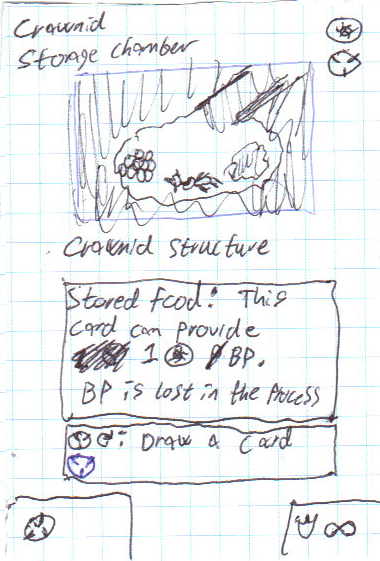 Crawnid
Storage chamber
Crawnid structure
Stored food: This
card can provide
1 BP.
BP is lost in the process
: Draw a card
∞